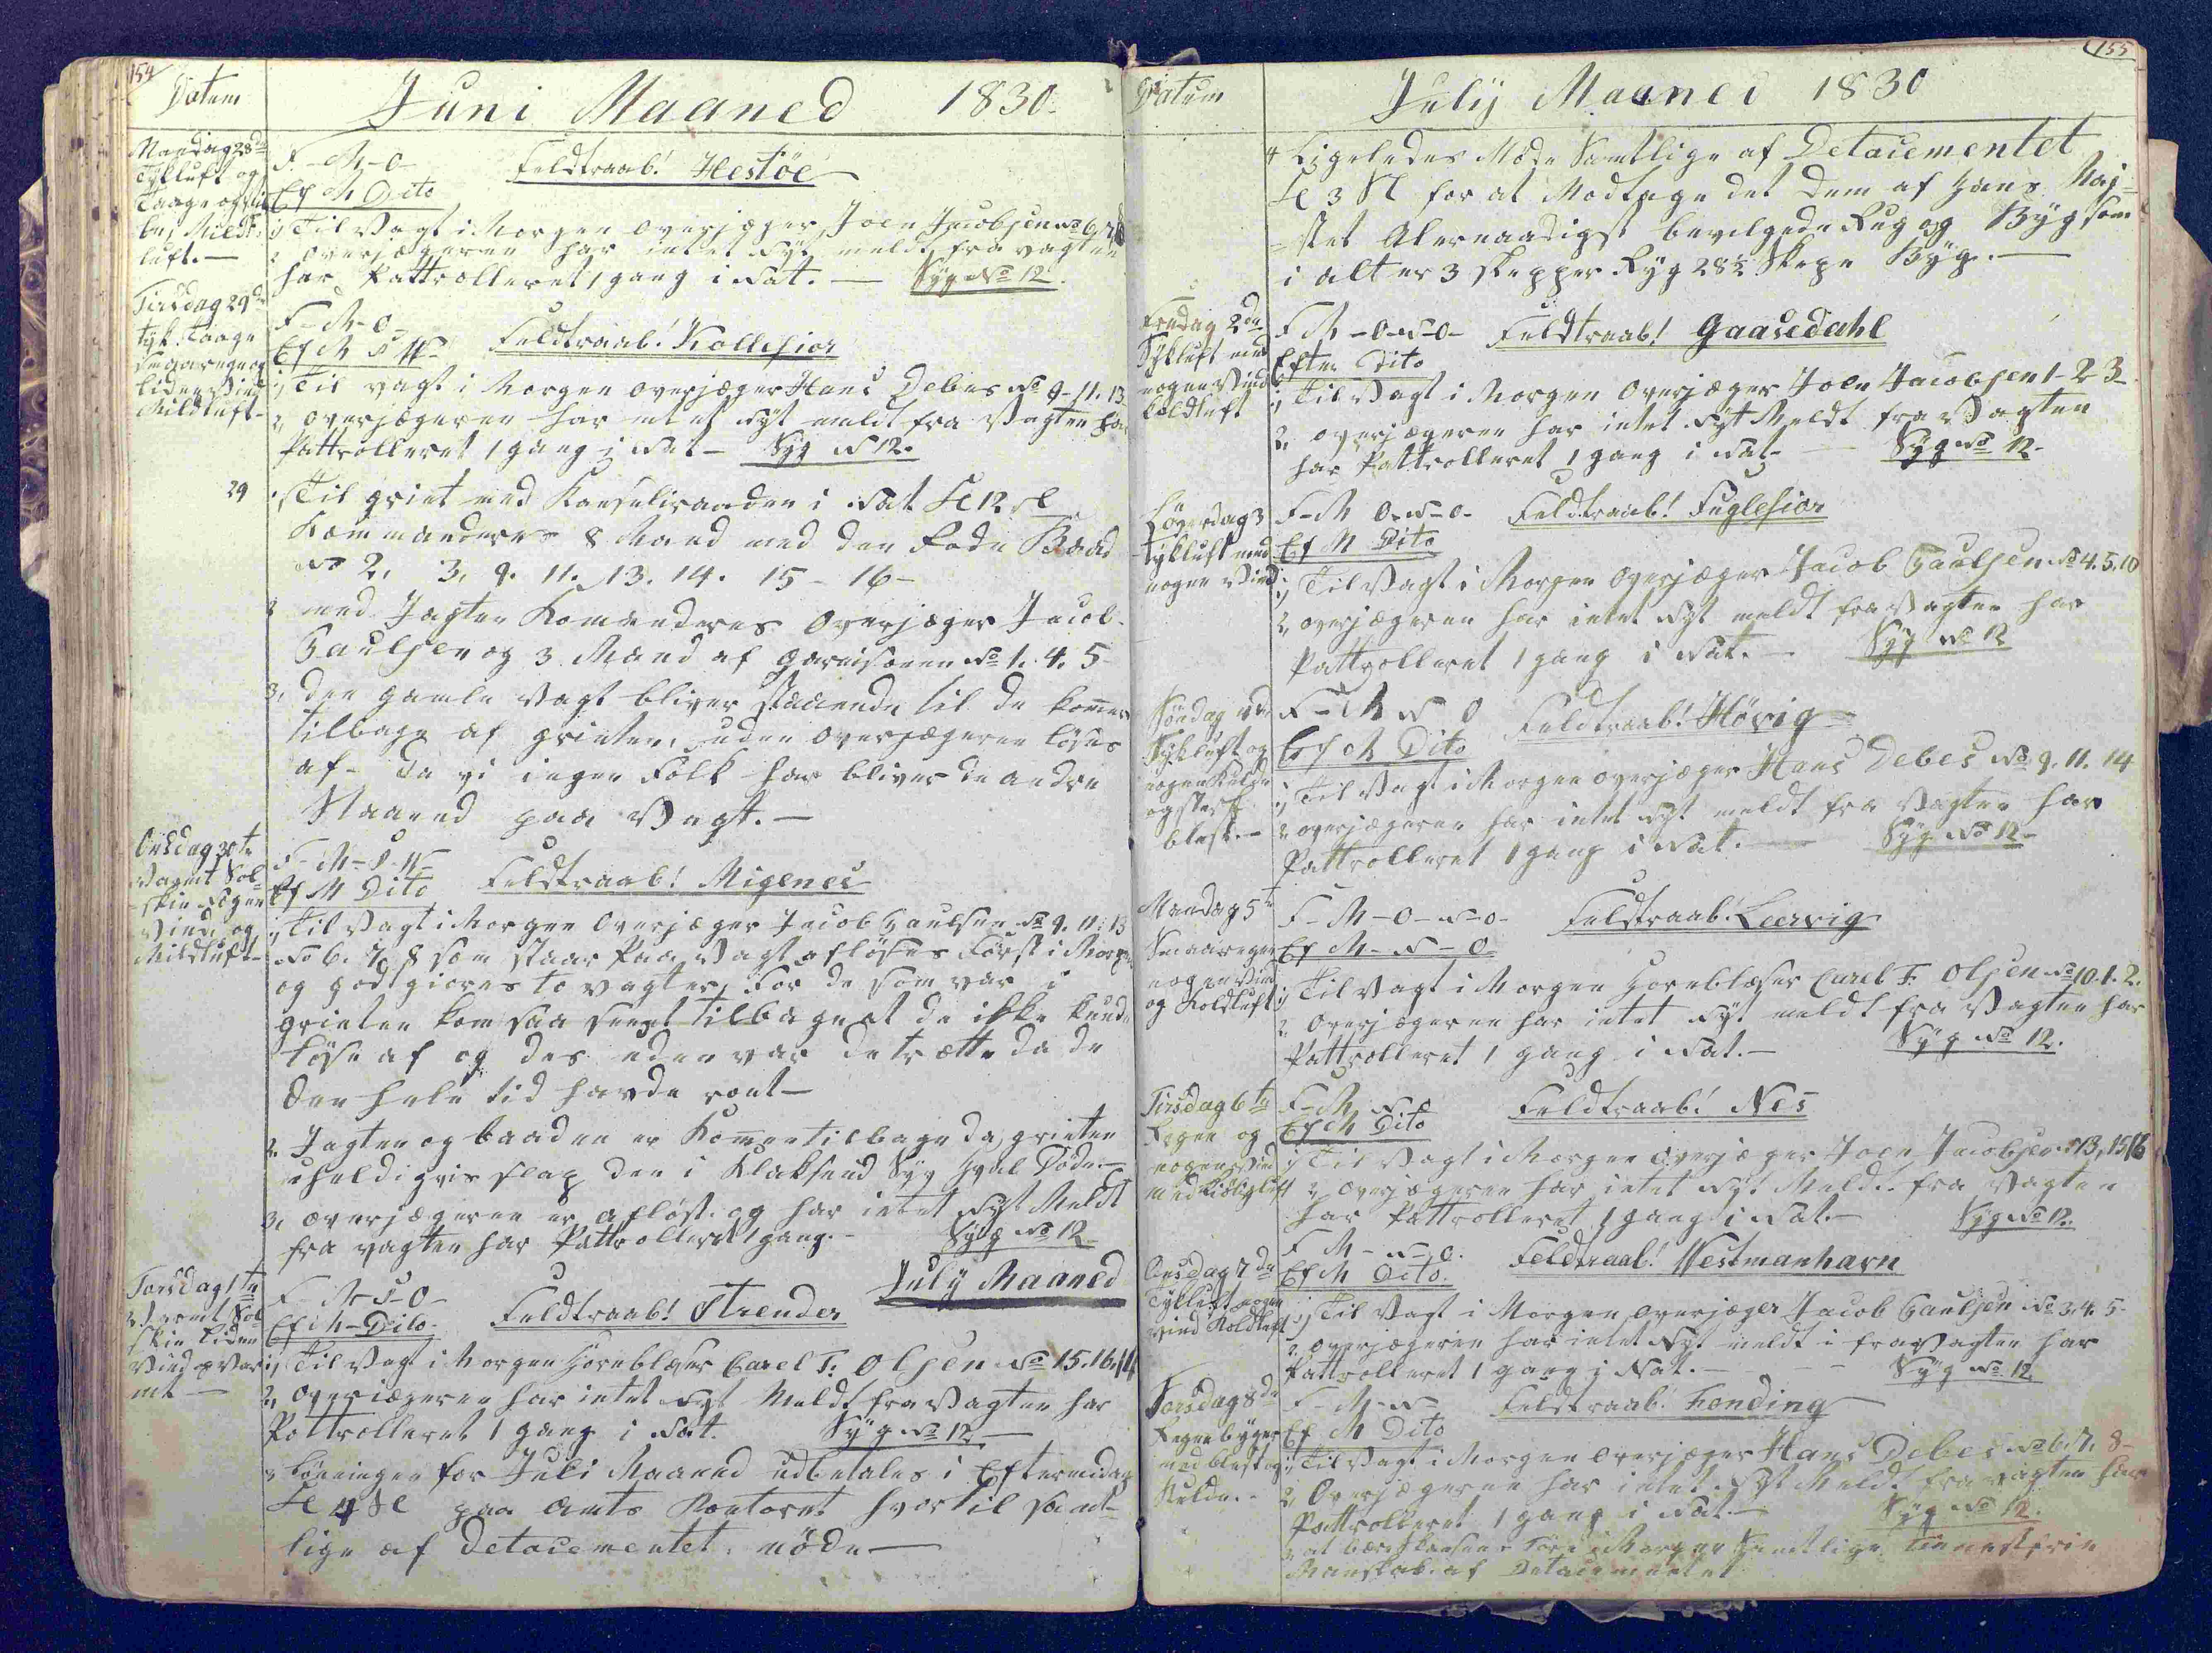 154
Datum
Juni Maaned 1830.
Mandag 28de
Tykluft og
Taage og
luft.
F-M-O-
Feldtraab! Hestöe
Ef M Dito
1, Til Vagt i Morgen Overjæger Joen Jacobsen No 6, 7, 8
2, Overjægeren har intet Nyt meldt fra Vagten
har Pattrolleret 1 gang i Nat. — Syg No 12.
Tirsdag 29de
tyk Taage
smaaregn og
liden Vind
Mildluft-
F-M-O-
Ef M
Feldtraab! Kollefior
1, Til Vagt i Morgen Overjæger Hans Debes No 9-11.13
2, Overjægeren har intet Nyt meldt fra Vagten har
Pattrolleret 1 gang i Nat- Syg N 12.
29
1, Til grint med Kanseliraaden i Nat Kl 12 Sl
Kommanderes 8 Mand med den Røde Baad
No 2, 3, 9. 11. 13. 14. 15-16-
2 med Jagten Komanderes Overjæger Jacob
Paulsen og 3 Mand af Garnisonen No 1. 4. 5-
3, den gamle Vagt bliver staaende til de kommer
tilbage af grinten, uden Overjægeren løses
af- da vi ingen Folk har bliver de andre
Staaend paa Vagt.—
Onsdag 30te
Varmt Sol-
skin nogen
Vind og
Mildluft-
Ef M Dito
Feldtraab! Migenes
1, Til Vagt i Morgen Overjæger Jacob Paulsen No 9. 11. 13
No 6. 7. 8 som staar Paa Vagt afløses Först i Morgen
og godtgiøres to vagter, For de som var i
grinten kom saa seent tilbage at de ikke kunde
løse af og des uden var de trætte da de
den hele tid havde roet—
2. Jagten og baaden er Kommen tilbage da grinten
uheldigvis slap den i Klaksund Syv Hval Döde—
3, Overjægeren er aflöst og har intet Nyt Meldt
fra vagten har Pattrolleret 1 gang.- Syg No 12
July Maaned
Torsdag 1te
Varmt Sol
skin liden
Vind og Var
mt —
F-M-S-O-
Ef M-Dito-
Feldtraab! Strender
1, Til Vagt i Morgen Hornblæser Carel F. Olsen No 15.16.
2, Overjægeren har intet Nyt Meldt fra Vagten har
Pattrolleret 1 gang i Nat. Syg No 12—
3 Lönningen for Juli Maaned udbetales i Eftermidag
Kl 4 Sl paa Amts Kontoret hvortil samt-
lige af Detacementet möde—
155
Datum
July Maaned 1830
4 Ligeledes Møde Samtlige af Detacementet
Kl 3 Sl for at Modtage det dem af Hans Maj-
-stet Alernaadigst bevilgede Rug og Byg som
i alt er 3 skepper Ryg 28½ Skepe Byg.—
Fredag 2den
Tykluft med
nogen Vind
Koldluft
F M-O-N-O-
Feldtraab! Gaasedahl
Efter Dito
1, Til Vagt i Morgen Overjæger Joen Jacobsen 1-2 3-
2, Overjægeren har intet Nyt Meldt fra Vagten
har Pattrolleret 1 gang i Nat- Syg No 12-
Løverdag 3
tykluft med
nogen Vind
F-M O-N-O-
Feldtraab! Fuglefior
Ef M Dito
1, Til Vagt i Morgen Overjæger Jacob Paulsen No 4. 5. 10
2, overjægeren har intet Nyt meldt fra Vagten har
Pattrolleret 1 gang i Nat.- Syg No 12
Söndag
Tykluft og
nogen Kulde
og sterk
blæst.-
F-M N O
Feldtraab! Hövig
Ef M Dito
1, Til Vagt i Morgen overjæger Hans Debes No 9. 11. 14
2 overjægeren har intet Nyt meldt fra Vagten har
Pattrolleret 1 gang i Nat.— Syg No 12-
Mandag 5te
Smaaregn
nogen Vind
og Koldluft
F-M-O-N-O-
Feldtraab! Leervig
Ef M-N-O-
1, Til Vagt i Morgen Hornblæser Carel F. Olsen No 10. 1. 2.
2 Overjægeren har intet Nyt meldt fra Vagten har
Pattrolleret 1 gang i Nat.— Syg No 12.
Tirsdag 6te
Regn og
nogen Vind
med Kiöligluft
F-M N O
Feldtraab! Nes
Ef M Dito
1, Til Vagt i Morgen Overjæger Joen Jacobsen No 13, 15 16
2 Overjægeren har intet Nyt Meldt fra Vagten
har Pattrolleret 1 gang i Nat.— Syg No 12.
Onsdag 7de
Tykluft nogen
Vind Koldluft
F M-N-O.
Feldtraab! Westmanhavn
Ef M Dito.
1, Til Vagt i Morgen overjæger Jacob Paulsen No 3. 4. 5-
2, overjægeren har intet Nyt meldt i fra Vagten har
Pattrolleret 1 gang i Nat.- Syg No 12
Torsdag 8de
Regnbyger
med blæst og
Kulde.-
F-M-N-
Feldtraab! Fonding
Ef M Dito
1, Til Vagt i Morgen Overjæger Hans Debes No 6. 7. 8-
2, Overjægeren har intet Nyt Meldt fra vagten har
Pattrolleret 1 gang i Nat.- Syg No 12.
3, at bære Torv i Morgen Samtlige tienestfrie
Manskab af Detacementet